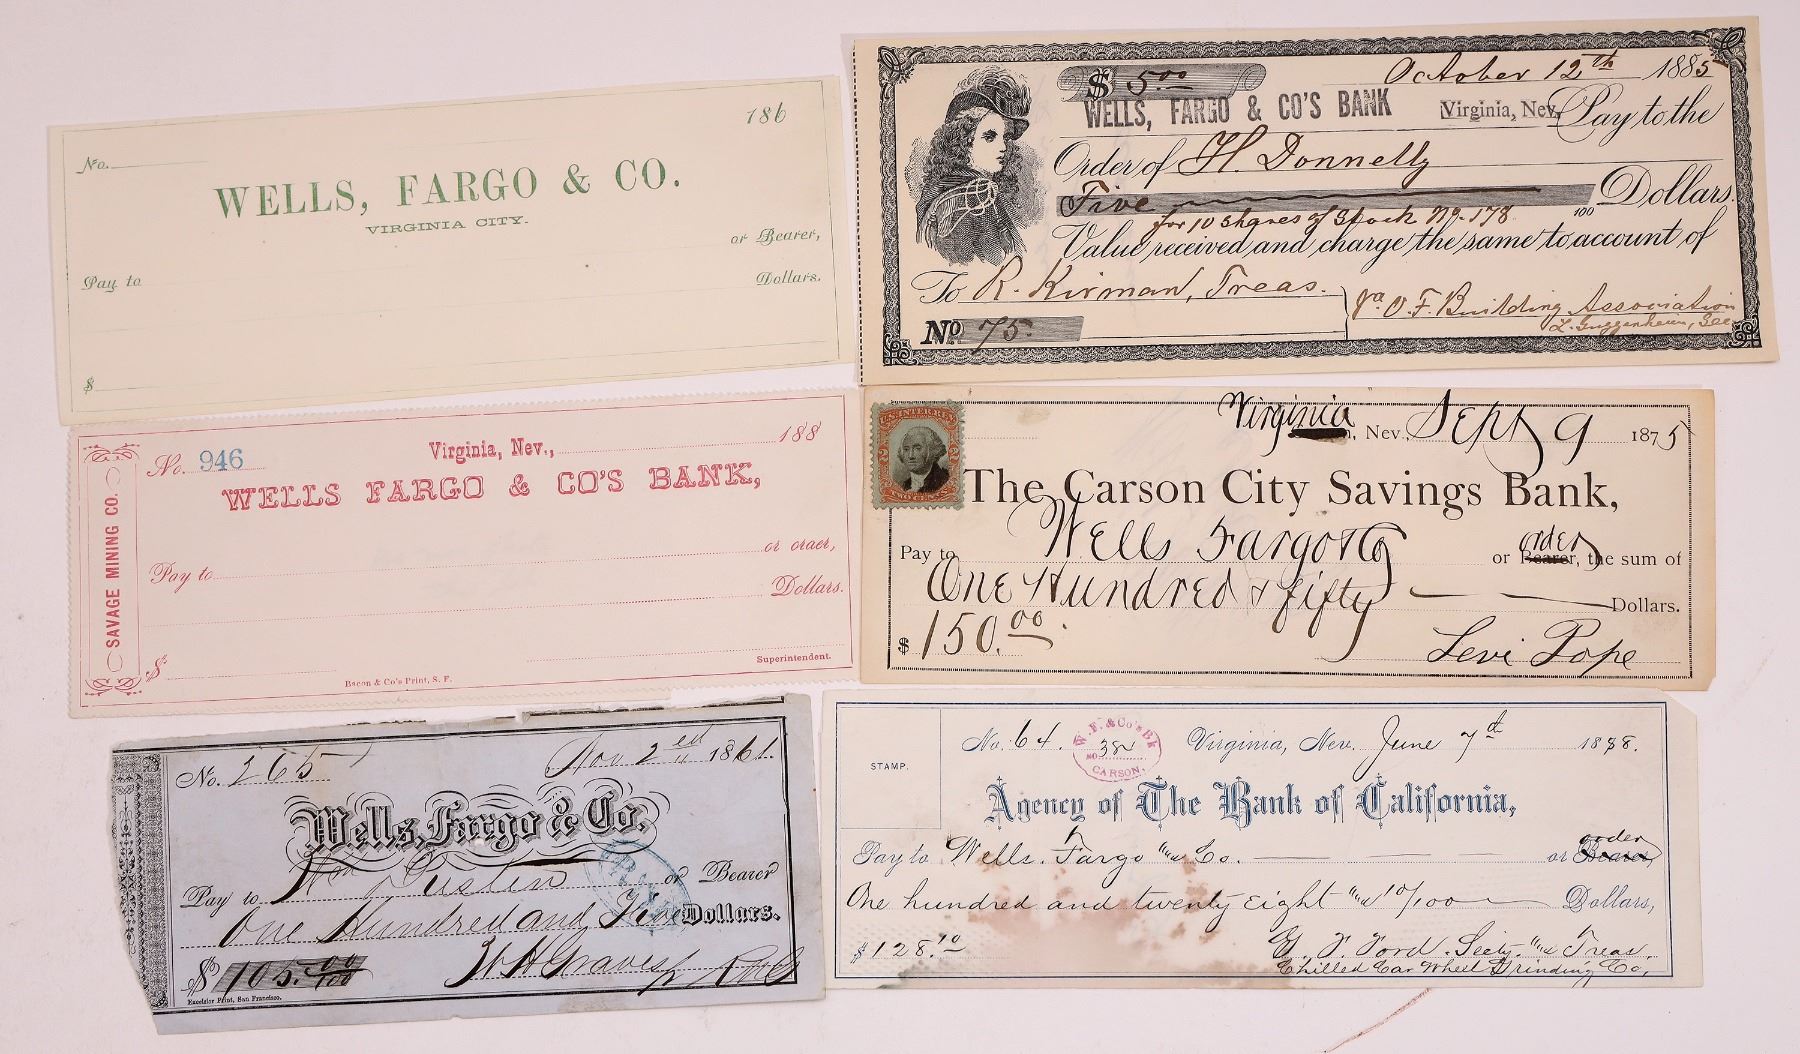 186
No.
WELLS, FARGO & CO.
VIRGINIA CITY.
or Bearer,
Pay to
Dollars.
$
$ 5.00
October 12th 1885
WELLS, FARGO & CO'S BANK
Virginia, Nev. Pay to the
Order of H. Donnelly
Five
100 Dollars.
for 10 shares of Stock No. 178
Value received and charge the same to account of
To R. Kirman, Treas.
Va. O. F. Building Association
L. Guggenheim, Sec
No 75.
SAVAGE MINING CO.
No. 946
Virginia, Nev., 188
WELLS FARGO & CO'S BANK,
or order,
Pay to
Dollars.
$
Superintendent.
Bacon & Co's Print, S. F.
U.S. INTER. REV.
2
TWO CENTS
Virginia, Nev., Sept 9 1875
The Carson City Savings Bank,
Pay to Wells Fargo & Co or Bearer, order the sum of
One Hundred & fifty Dollars.
$ 150.00
Levi Pope
No. 265
Nov 2nd 1861.
Wells, Fargo & Co.
Pay to Wm Dusten or Bearer
One Hundred and Five Dollars.
$ 105.00/100
W H Graves
Excelsior Print, San Francisco.
STAMP.
No. 64.
W. F. & Co's Bk
No. 382
CARSON.
Virginia, Nev. June 7th 1888.
Agency of The Bank of California,
Pay to Wells. Fargo "and" Co. or Bearer, order
One hundred and twenty Eight "and" 10/100 Dollars,
$ 128.10
Ford. Secty. "and" Treas.
Chilled Car Wheel Grinding Co.